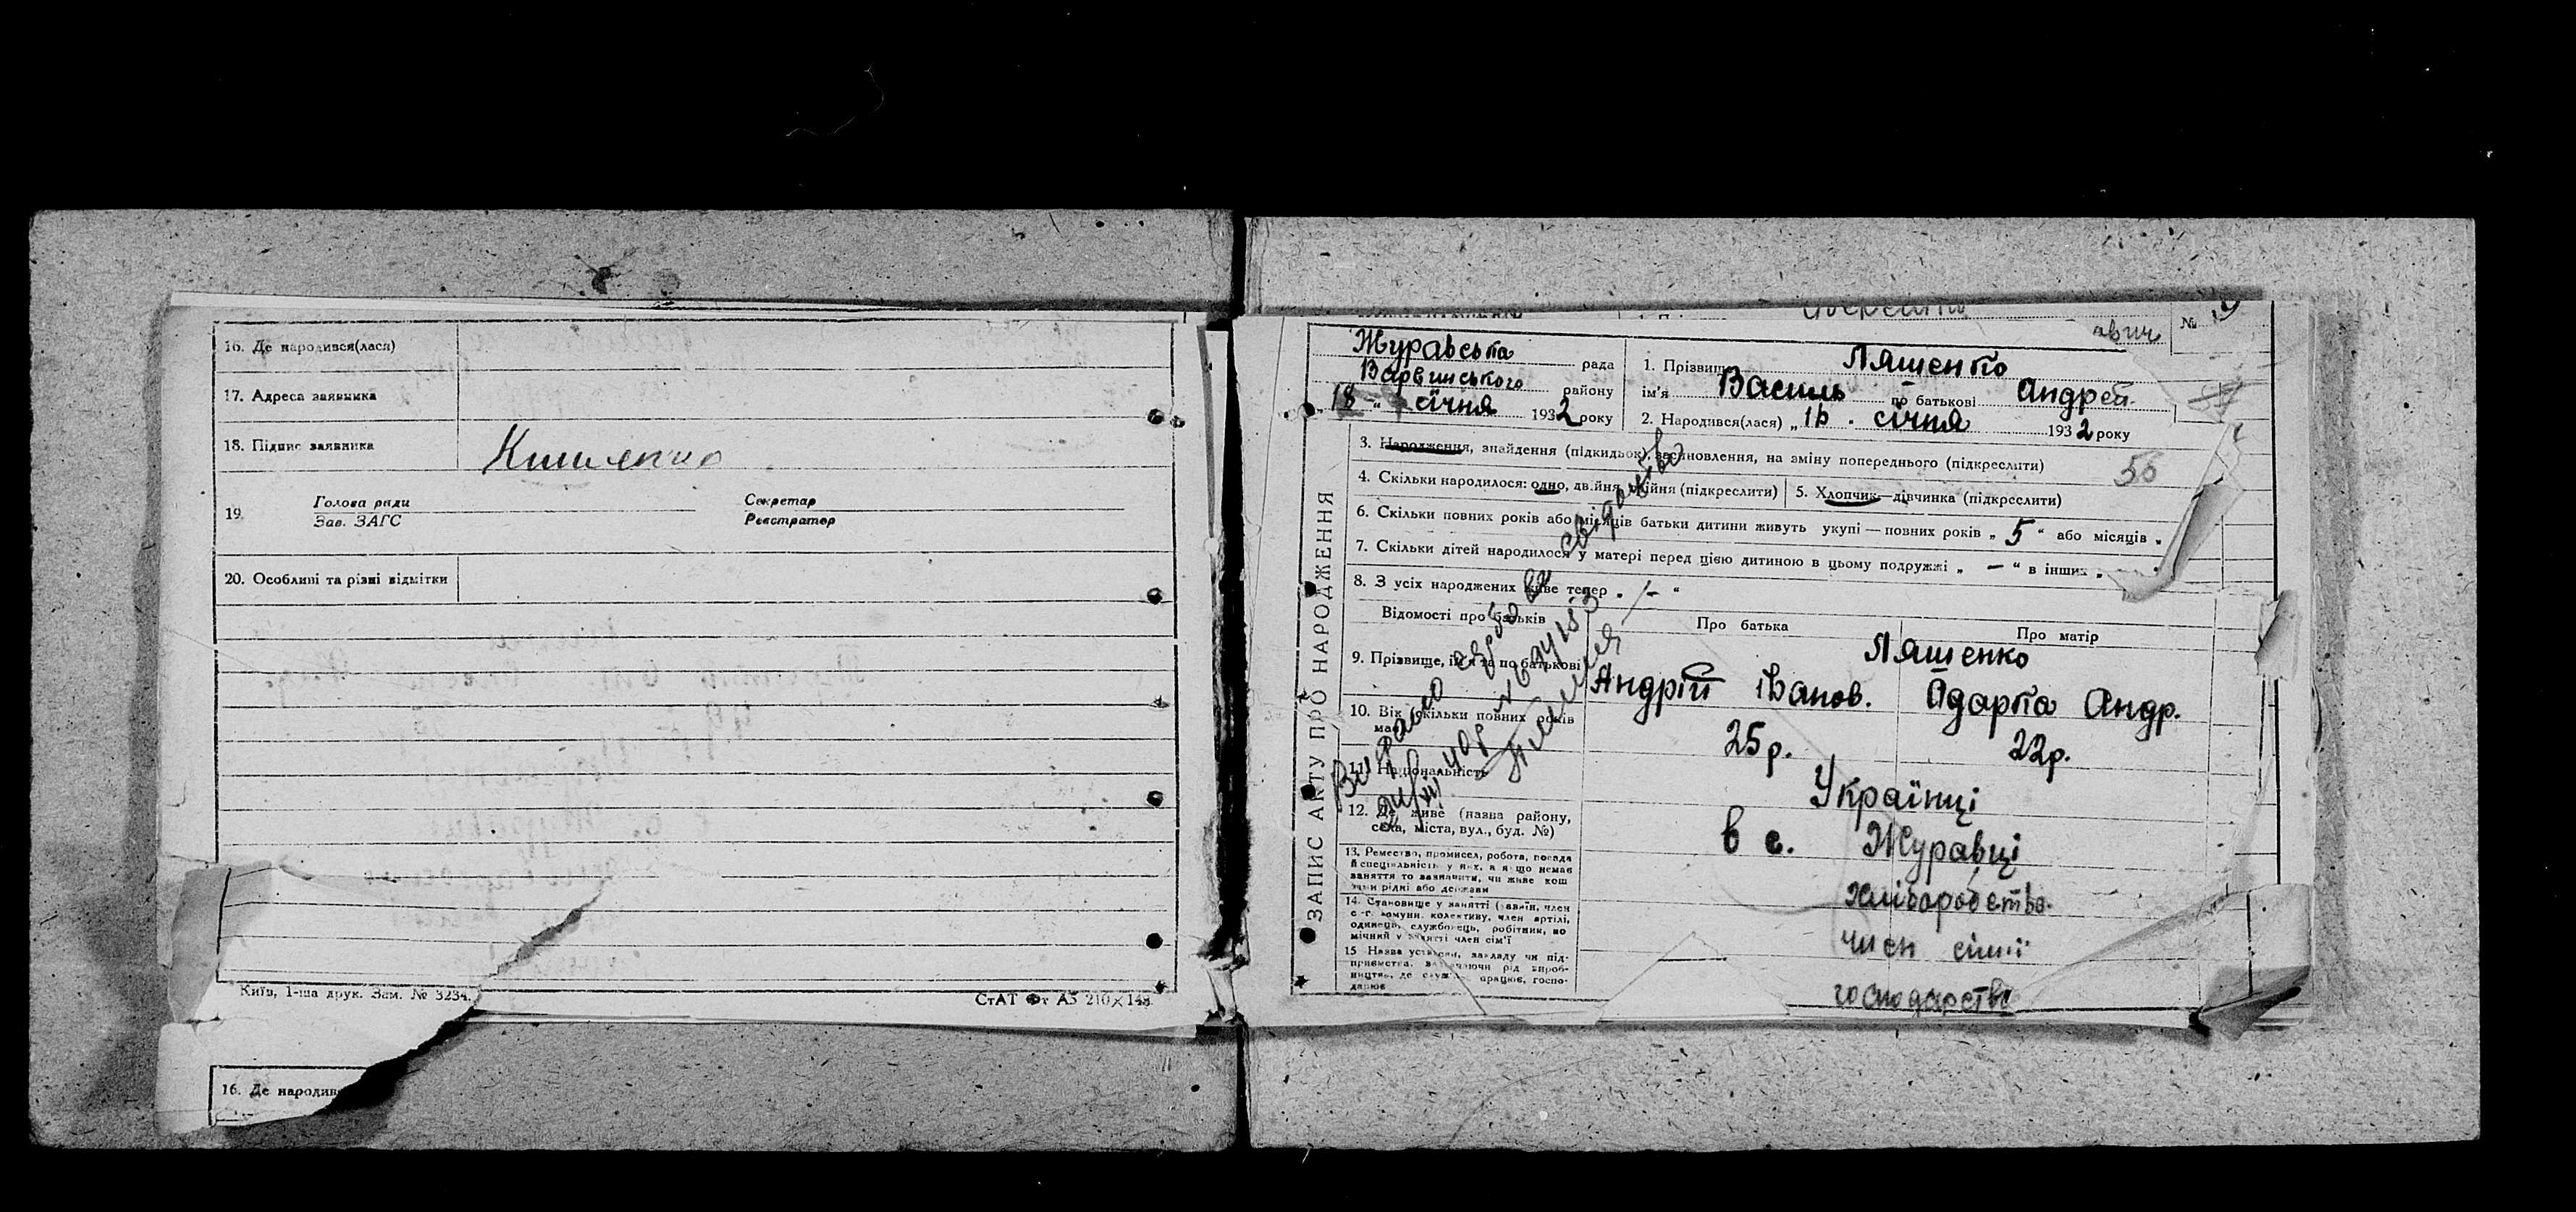 16. Де народився(лася)
17. Адреса заявника
18. Підпис заявника
19. Голова ради Секретар
Зав. ЗАГС Реєстратор
20. Особливі та різні відмітки
Київ, 1-ша друк. Зам. № 3234.
СтАТ Фт А5 210×148
16. Де народив
№
авич
Журавська рада
Варвинського району
18 січня 1932 року
1. Прізвище Ляшенко
ім'я Василь по батькові Андрей
2. Народився(лася) „ січня 1932 року
3. Народження, знайдення (підкидьок), встановлення, на зміну попереднього (підкреслити)
50
4. Скільки народилося: одно, двійня, трійня (підкреслити)
5. Хлопчик дівчинка (підкреслити)
6. Скільки повних років або місяців батьки дитини живуть укупі — повних років „ 5 “ або місяців „
7. Скільки дітей народилося у матері перед цією дитиною в цьому подружжі „ — “ в інших „
8. З усіх народжених живе тепер „ — “
Відомості про батьків
Про батька
Про матір
ЗАПИС АКТУ ПРО НАРОДЖЕННЯ
9. Прізвище, ім'я та по батькові
Ляшенко
Андрій Іванов. Одарка Андр.
10. Вік (скільки повних років має)
25р. 22р.
11. Національність
Українці
12. Де живе (назва району,
села, міста, вул., буд. №)
в с. Журавці
13. Ремество, промисел, робота, посада
й спеціальність у них, а якщо немає
заняття то зазначити, чи живе кош
тами рідні або держави
Хліборобство
14. Становище у занятті (хазяїн, член
с.-г. комуни, колективу, член артілі,
одинець, службовець, робітник, по
мічний у занятті член сім'ї
член сімї
15 Назва установи, закладу чи під-
приємства, зазначаючи рід вироб-
ництва, де служить, працює, госпо-
дарює
господарство
свідоцтво